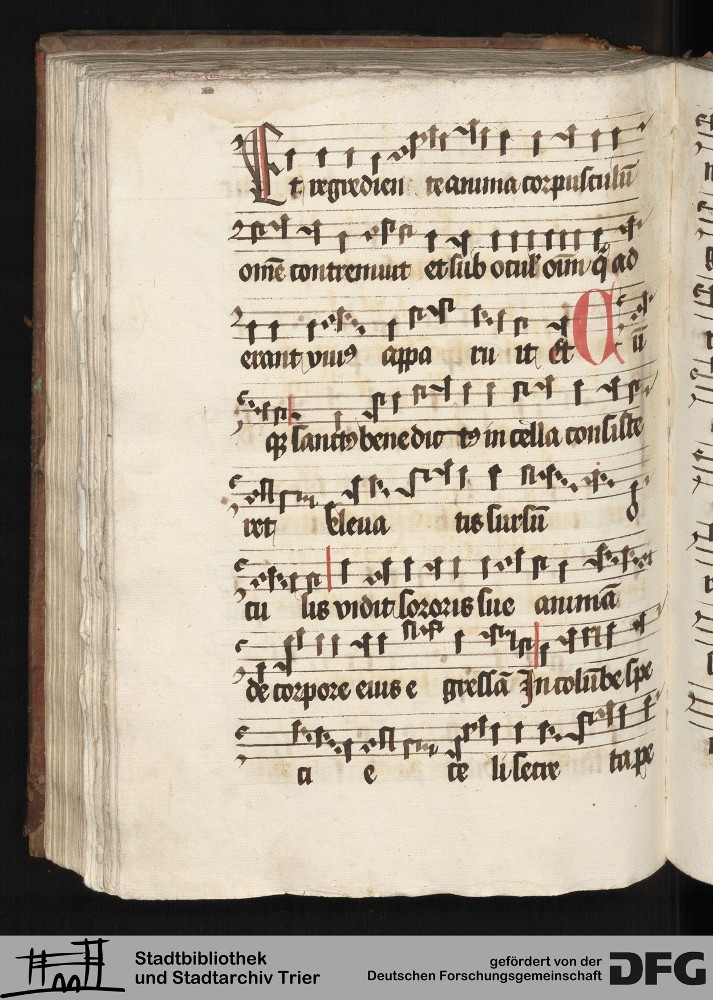 Et regredien te anima corpusculū
omē contremuit et sub ocul' oīm q̄ ad
erant vivꝰ appa ru it et Cū
qꝫ sanctꝰ benedic tꝰ in cella consiste
ret Eleva tis sursū o
cu lis vidit sororis sue animā
de corpore eius e gressā In colūbe spe
ci e ce li secre ta pe
Stadtbibliothek
und Stadtarchiv Trier
gefördert von der
Deutschen Forschungsgemeinschaft
DFG